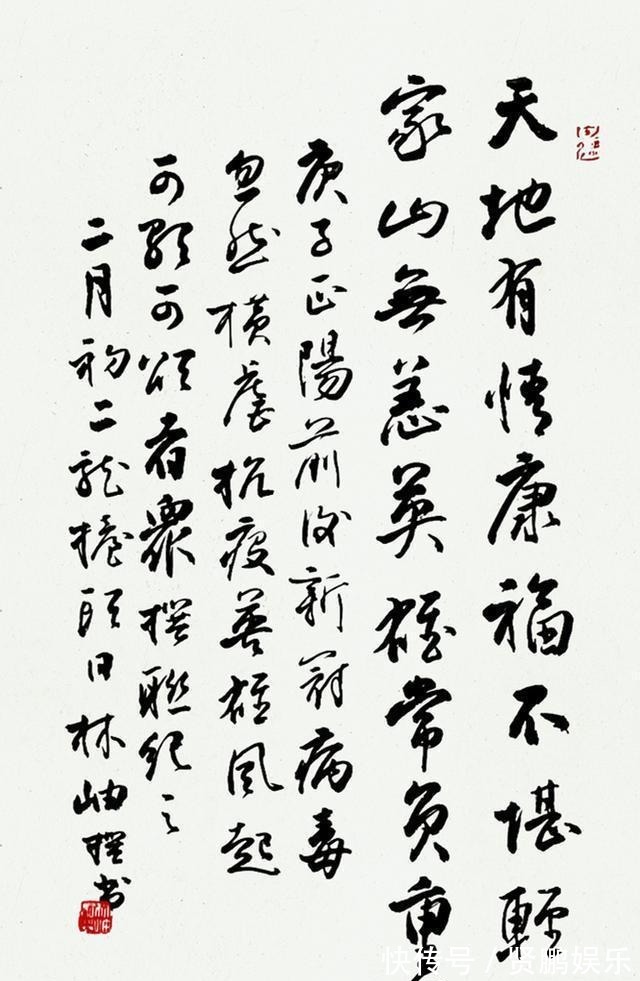 天地有情康福不堪輕
家山無恙英雄常負重
庚子正陽前後新冠病毒
忽然橫虐抗疫英雄風起
可歌可頌者眾撰聯紀之
二月初二龍擡頭日林岫撰書
快传号/贤鹏娱乐